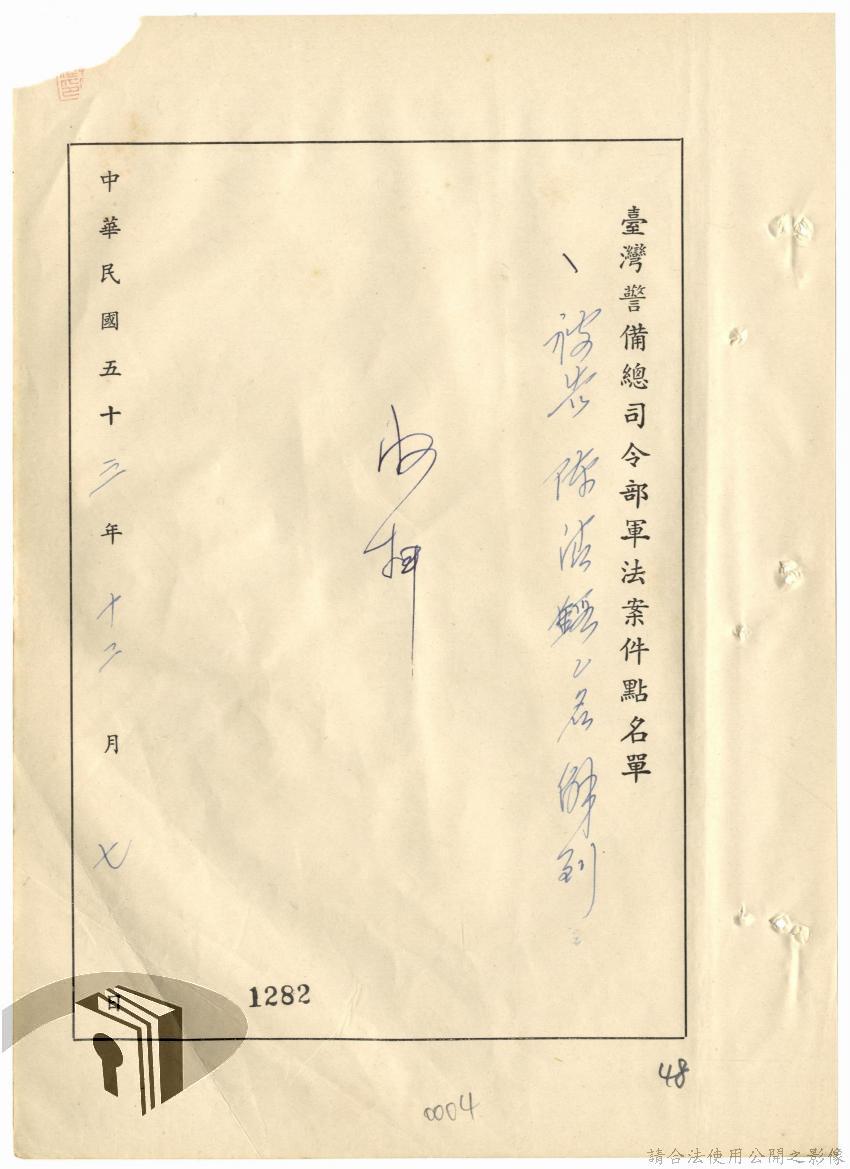 臺灣警備總司令部軍法案件點名單
、被告陳法鏗乙名解到
收押
中華民國五十三年十二月七日
1282
48
0004
請合法使用公開之影像